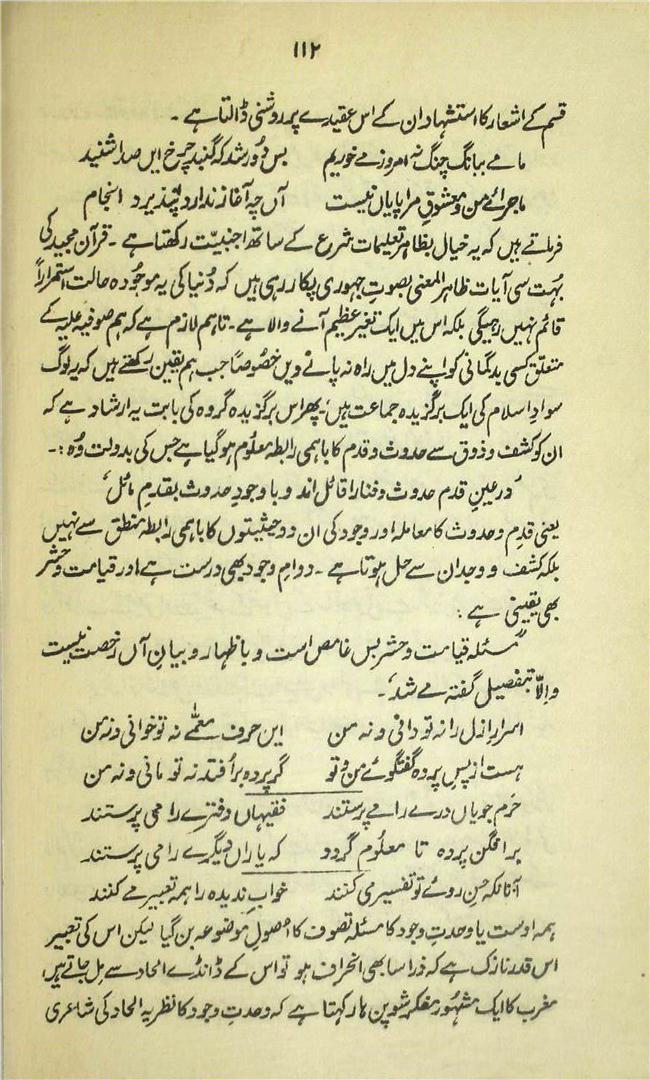 ۱۱۲
قسم کے اشعار کا استشہاد ان کے اس عقیدے پر روشنی ڈالتا ہے ۔
ما مے ببانگ چنگ نہ امروز مے خوریم بس دُور شد کہ گنبد چرخ ایں صدا شنید
ماجرائے من و معشوقِ مرا پایاں نیست آں چہ آغاز ندارد نپذیرد انجام
فرماتے ہیں کہ یہ خیال بظاہر تعلیمات شرع کے ساتھ اجنبیّت رکھتا ہے ۔ قرآن مجید کی
بہُت سی آیات ظاہر المعنی بصوتِ جہوری پکار رہی ہیں کہ دُنیا کی یہ موجُودہ حالت استمراراً
قائم نہیں رہیگی بلکہ اس میں ایک تغیر عظیم آنے والا ہے ۔ تاہم لازم ہے کہ ہم صوفیہ علیہ کے
متعلق کسی بدگمانی کو اپنے دل میں راہ نہ پانے دیں خصُوصاً جب ہم یقین رکھتے ہیں کہ یہ لوگ
سوادِ اسلام کی ایک برگزیدہ جماعت ہیں ۔ پھر اس برگزیدہ گروہ کی بابت یہ ارشاد ہے کہ
ان کو کشف و ذوق سے حدوث و قدم کا باہمی رابطہ معلُوم ہو گیا ہے جس کی بدولت وُہ :۔
’درعینِ قدم حدوث و فنا را قائل اند و باوجودِ حدوث بقدمِ مائل‘
یعنی قدم و حدوث کا معاملہ اور وجود کی ان دو حیثیتوں کا باہمی رابطہ منطق سے نہیں
بلکہ کشف و وجدان سے حل ہوتا ہے ۔ دوامِ وجود بھی درست ہے اور قیامت و حشر
بھی یقینی ہے :
”مسئلہ قیامت و حشر بس غامض است و باظہار و بیانِ آں رخصت نیست
والّا بتفصیل گفتہ مے شد“۔
اسرارِ ازل را نہ تو دانی و نہ من ایں حرف معمّے نہ تو خوانی و نہ من
ہست از پسِ پردہ گفتگوئے من و تو گر پردہ برافتد نہ تو مانی و نہ من
حَرم جویاں درے را مے پرستند فقیہاں دفترے را می پرستند
برافگن پردہ تا معلُوم گردد کہ یاراں دیگرے را می پرستند
آنانکہ حسنِ روئے تو تفسیر می کنند خوابِ ندیدہ را ہمہ تعبیر مے کنند
ہمہ اوست یا وحدتِ وجود کا مسئلہ تصوف کا اصُولِ موضُوعہ بن گیا لیکن اس کی تعبیر
اس قدر نازک ہے کہ ذرا سا بھی انحراف ہو تو اس کے ڈانڈے الحاد سے مِل جاتے ہیں
مغرب کا ایک مشہُور مفکر شوپن ہار کہتا ہے کہ وحدتِ وجود کا نظریہ الحاد کی شاعری